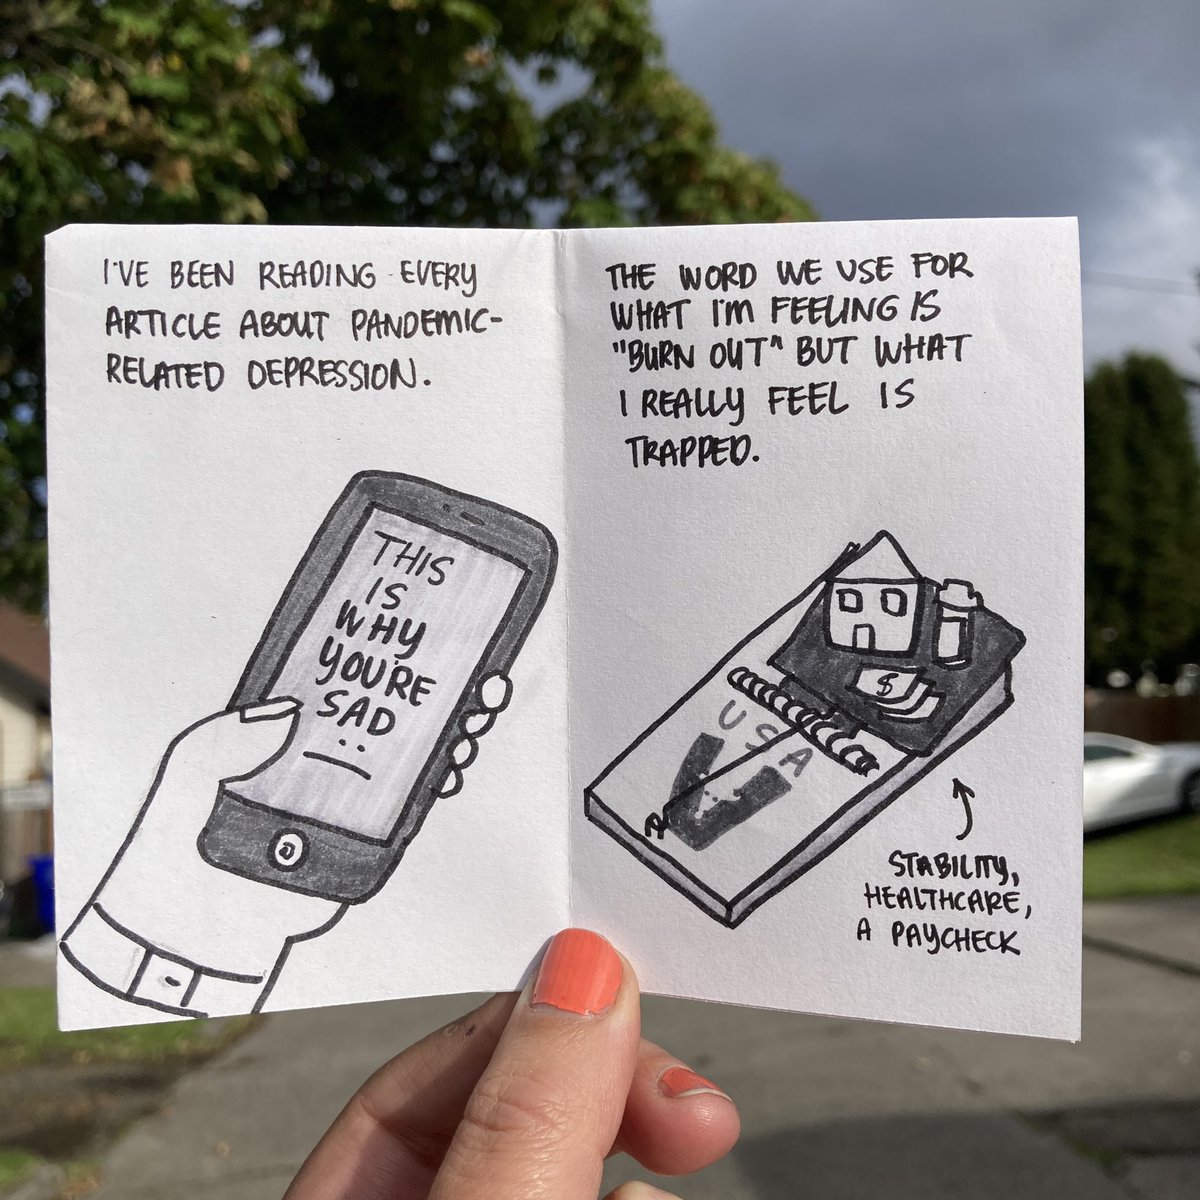 I'VE BEEN READING EVERY
ARTICLE ABOUT PANDEMIC-
RELATED DEPRESSION.
THIS
IS
WHY
YOU'RE
SAD
THE WORD WE USE FOR
WHAT I'M FEELING IS
"BURN OUT" BUT WHAT
I REALLY FEEL IS
TRAPPED.
$
USA
STABILITY,
HEALTHCARE,
A PAYCHECK